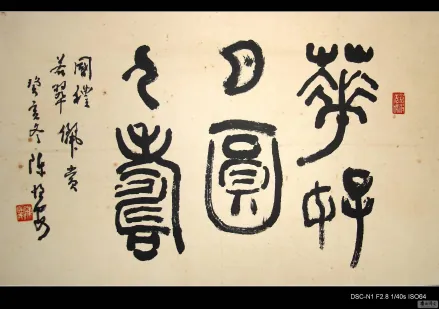 華好
月圓
人壽
國禮
若翠
賞
癸亥冬 陳
DSC-N1 F2.8 1/40s ISO64